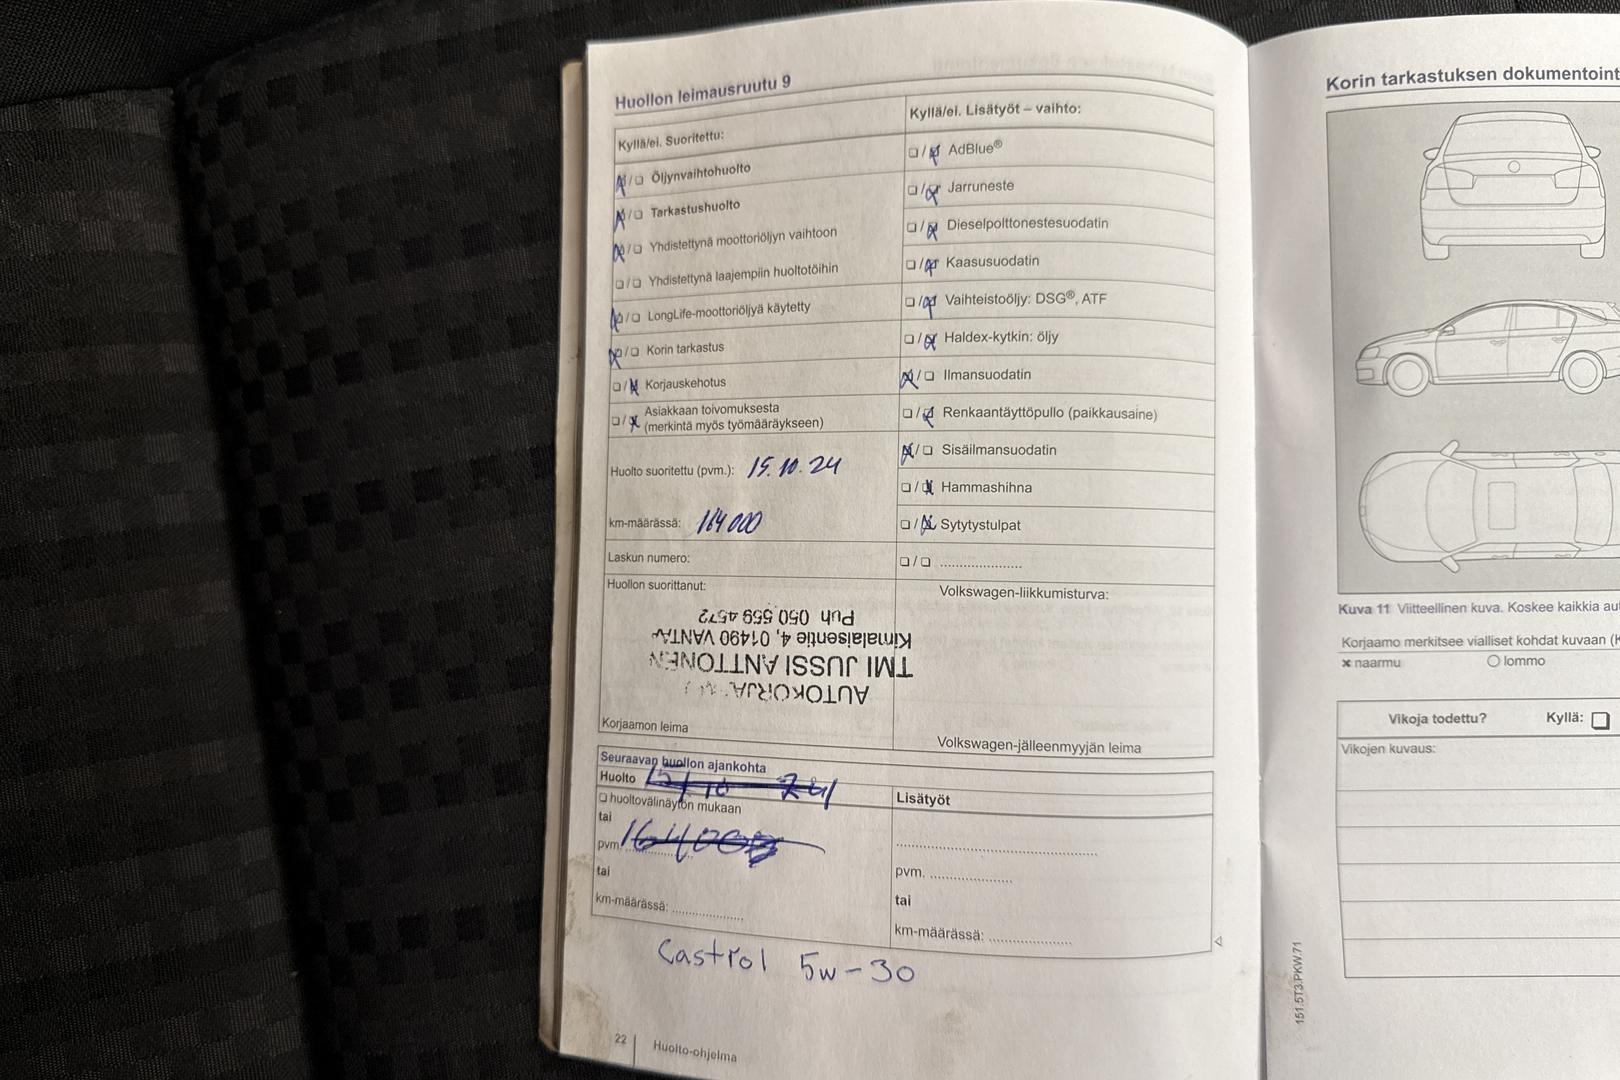 Huollon leimausruutu 9
Kyllä/ei. Suoritettu:
Öljynvaihtohuolto
Tarkastushuolto
Yhdistettynä moottoriöljyn vaihtoon
Yhdistettynä laajempiin huoltotöihin
LongLife-moottoriöljyä käytetty
Korin tarkastus
Korjauskehotus
Asiakkaan toivomuksesta
(merkintä myös työmääräykseen)
Huolto suoritettu (pvm.): 15.10.24
km-määrässä: 164 000
Laskun numero:
Huollon suorittanut:
AUTOKORJA
TMI JUSSI ANTTONEN
Kimalaisentie 4, 01490 VANTA
Puh 050 559 4572
Korjaamon leima
Kyllä/ei. Lisätyöt – vaihto:
AdBlue®
Jarruneste
Dieselpolttonestesuodatin
Kaasusuodatin
Vaihteistoöljy: DSG®, ATF
Haldex-kytkin: öljy
Ilmansuodatin
Renkaantäyttöpullo (paikkausaine)
Sisäilmansuodatin
Hammashihna
Sytytystulpat
Volkswagen-liikkumisturva:
Volkswagen-jälleenmyyjän leima
Seuraavan huollon ajankohta
Huolto
huoltovälinäytön mukaan
tai
pvm.
tai
km-määrässä:
Lisätyöt
pvm.
tai
km-määrässä:
Castrol 5w-30
22 Huolto-ohjelma
Korin tarkastuksen dokumentoint
Kuva 11 Viitteellinen kuva. Koskee kaikkia au
Korjaamo merkitsee vialliset kohdat kuvaan (K
x naarmu
lommo
Vikoja todettu? Kyllä:
Vikojen kuvaus:
151.5T3.PKW.71